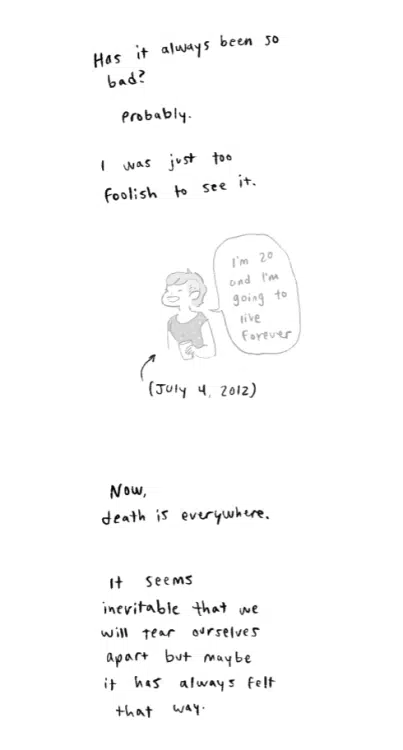 Has it always been so
bad?
Probably.
I was just too
foolish to see it.
I'm 20
and I'm
going to
live
forever
(July 4, 2012)
Now,
death is everywhere.
It seems
inevitable that we
will tear ourselves
apart but maybe
it has always felt
that way.